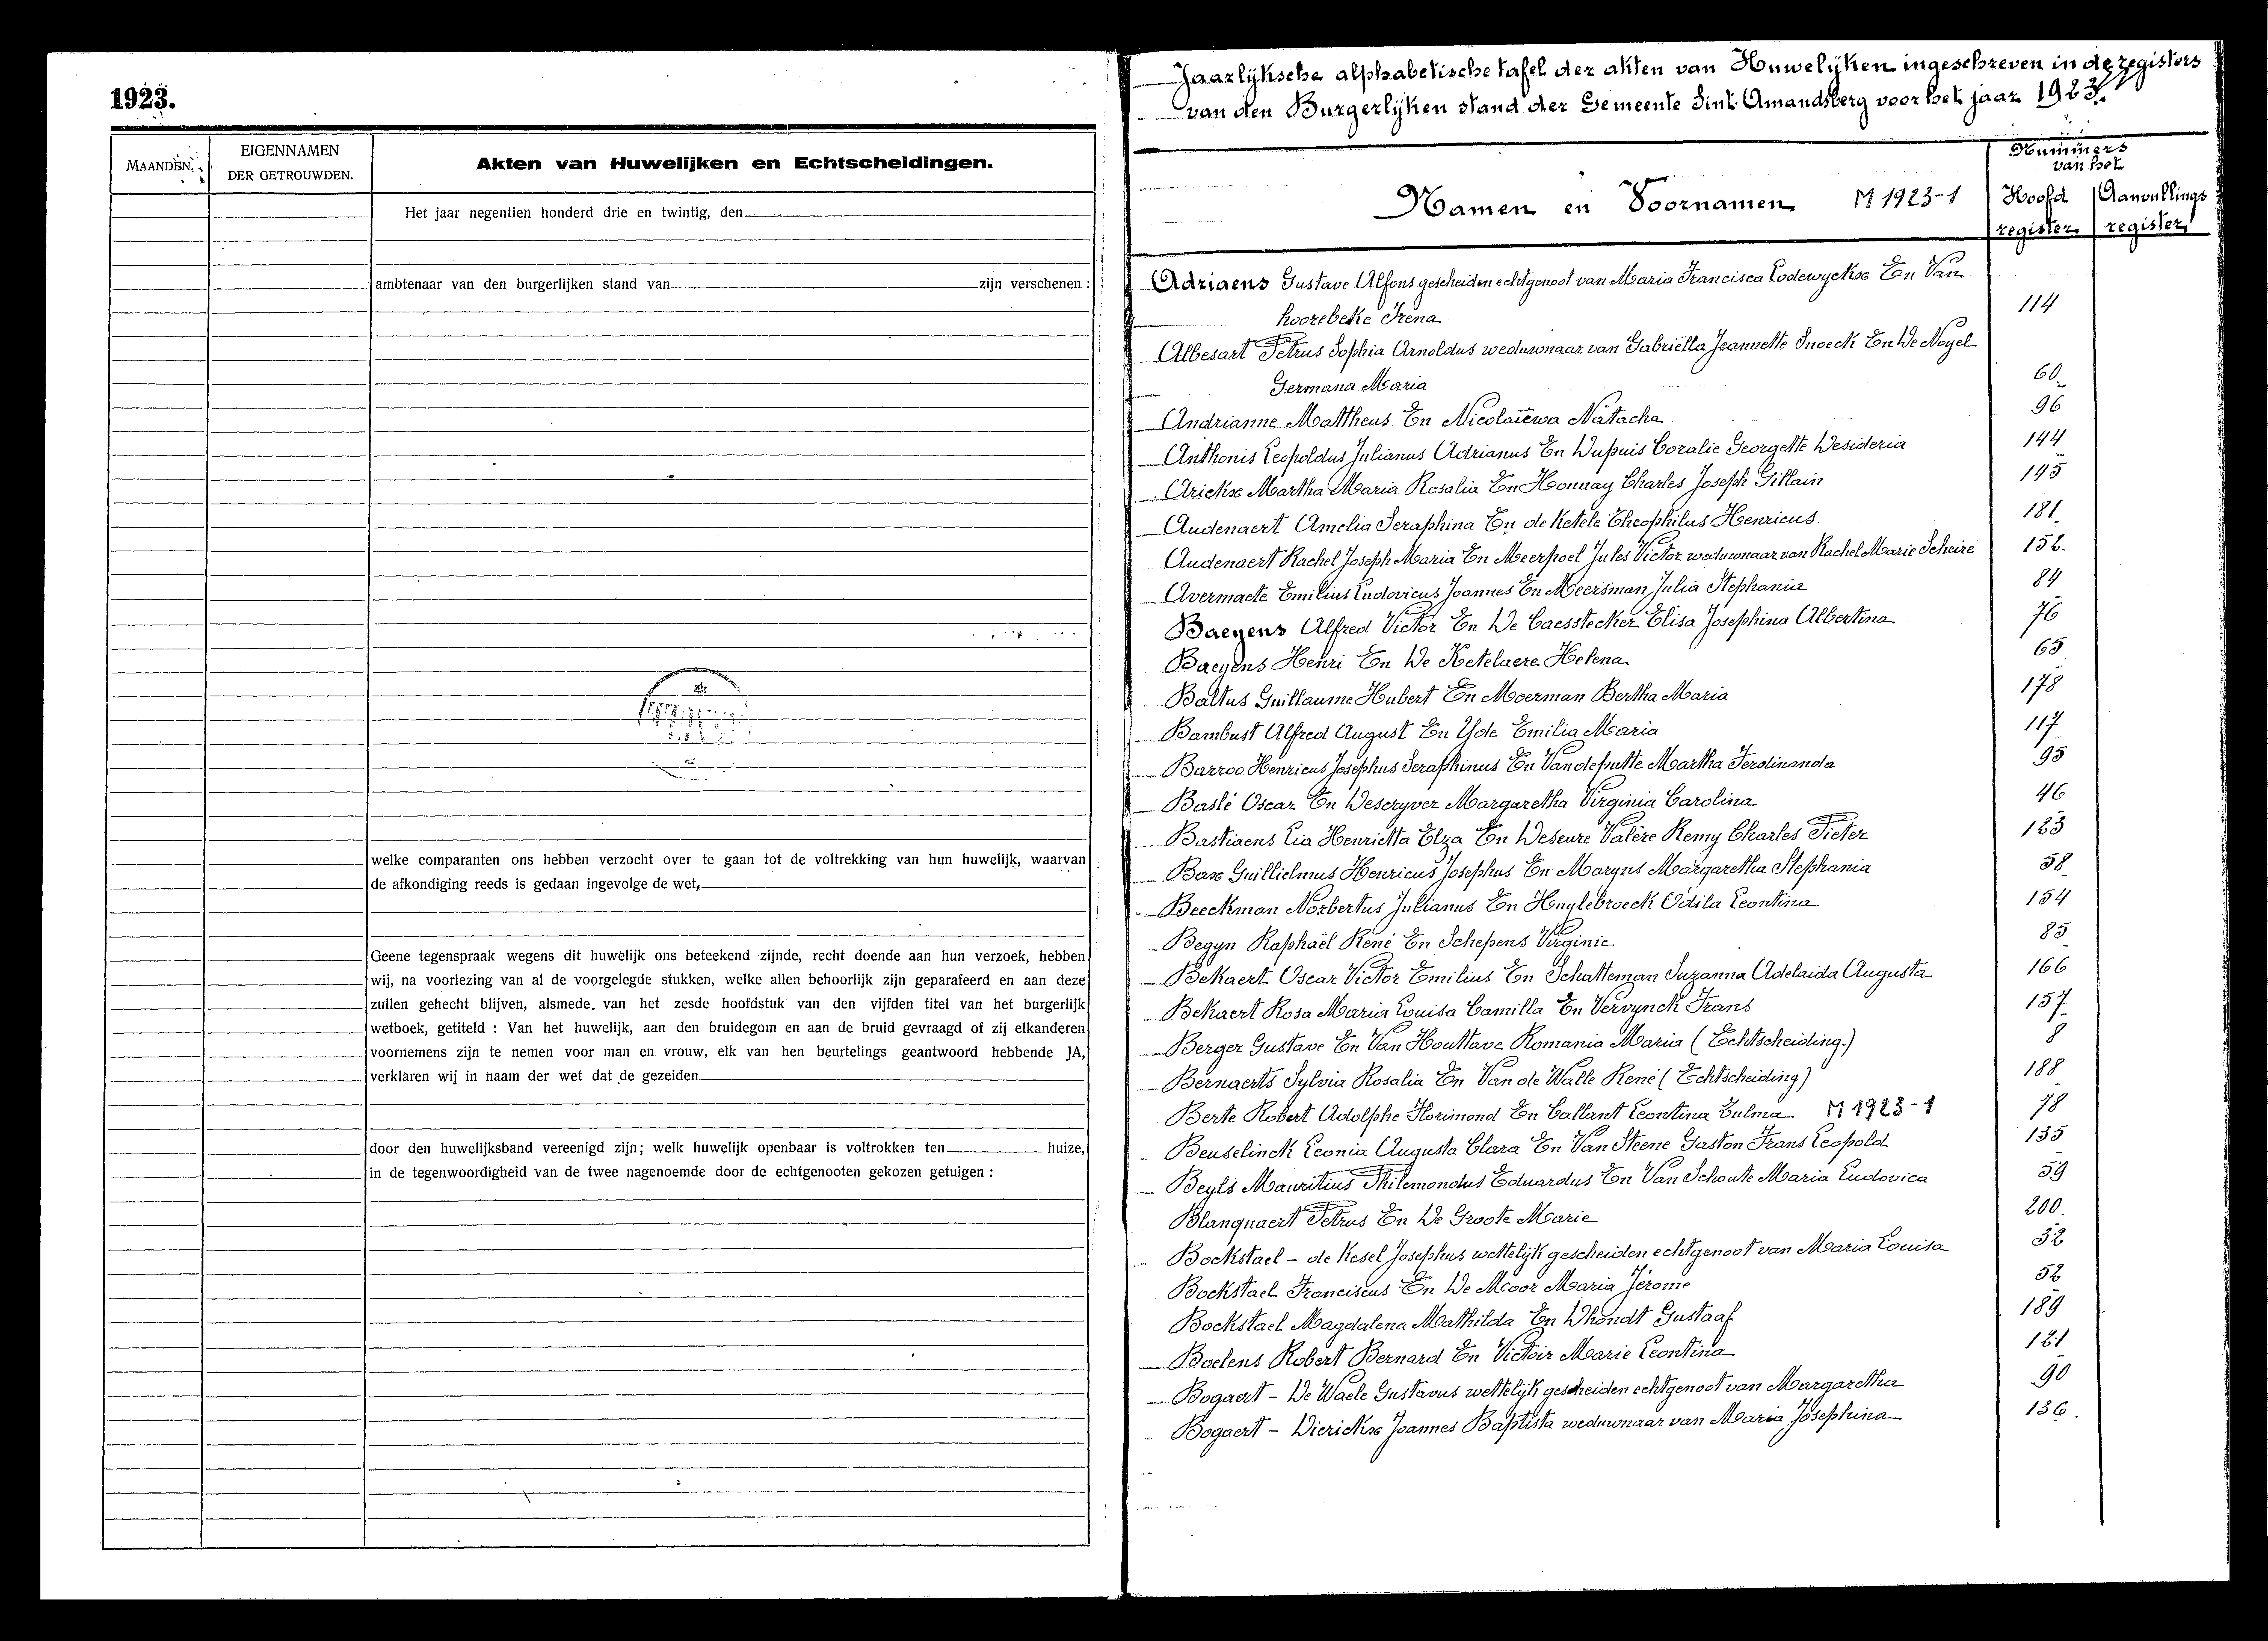 1923.
MAANDEN.
EIGENNAMEN
DER GETROUWDEN.
Akten van Huwelijken en Echtscheidingen.
Het jaar negentien honderd drie en twintig, den
ambtenaar van den burgerlijken stand van zijn verschenen :
welke comparanten ons hebben verzocht over te gaan tot de voltrekking van hun huwelijk, waarvan
de afkondiging reeds is gedaan ingevolge de wet,
Geene tegenspraak wegens dit huwelijk ons beteekend zijnde, recht doende aan hun verzoek, hebben
wij, na voorlezing van al de voorgelegde stukken, welke allen behoorlijk zijn geparafeerd en aan deze
zullen gehecht blijven, alsmede van het zesde hoofdstuk van den vijfden titel van het burgerlijk
wetboek, getiteld : Van het huwelijk, aan den bruidegom en aan de bruid gevraagd of zij elkanderen
voornemens zijn te nemen voor man en vrouw, elk van hen beurtelings geantwoord hebbende JA,
verklaren wij in naam der wet dat de gezeiden
door den huwelijksband vereenigd zijn; welk huwelijk openbaar is voltrokken ten huize,
in de tegenwoordigheid van de twee nagenoemde door de echtgenooten gekozen getuigen :
Jaarlijksche alphabetische tafel der akten van Huwelijken ingeschreven in de registers
van den Burgerlijken stand der Gemeente Sint Amandsberg voor het jaar 1923.
Namen en Voornamen M 1923-1
Nummers
van het
Hoofd Aanvullings
register register
Adriaens Gustave Alfons gescheiden echtgenoot van Maria Francisca Lodewyckx En Van
hoorebeke Irena 114
Albesart Petrus Sophia Arnoldus weduwnaar van Gabriëlla Jeannette Snoeck En De Noyel
Germana Maria 60
Andrianne Mattheus En Nicolaïewa Natacha 96
Anthonis Leopoldus Julianus Adrianus En Dupuis Coralie Georgette Desideria 144
Arickx Martha Maria Rosalia En Honnay Charles Joseph Gillain 145
Audenaert Amelia Seraphina En de Ketele Theophilus Henricus 181
Audenaert Rachel Joseph Maria En Meerpoel Jules Victor weduwnaar van Rachel Marie Scheire 152.
Avermaete Emilius Ludovicus Joannes En Meersman Julia Stephania 84
Baeyens Alfred Victor En De Caesstecker Elisa Josephina Albertina 76
Baeyens Henri En De Ketelaere Helena 65
Baltus Guillaume Hubert En Moerman Bertha Maria 178
Bambust Alfred August En Yde Emilia Maria 117
Barroo Henricus Josephus Seraphinus En Vandeputte Martha Ferdinanda 95
Baslé Oscar En Descryver Margaretha Virginia Carolina 46
Bastiaens Lia Henrietta Elza En Deseure Valère Remy Charles Pieter 123
Bax Guillielmus Henricus Josephus En Maryns Margaretha Stephania 58
Beeckman Norbertus Julianus En Huylebroeck Odila Leontina 154
Begyn Raphaël René En Schepens Virginie 85
Bekaert Oscar Victor Emilius En Schatteman Suzanna Adelaida Augusta 166
Bekaert Rosa Maria Louisa Camilla En Vervynck Frans 157
Berger Gustave En Van Houttave Romania Maria (Echtscheiding.) 8
Bernaerts Sylvia Rosalia En Van de Walle René (Echtscheiding) 188
Berte Robert Adolphe Florimond En Callant Leontina Zulma M 1923-1 78
Beuselinck Leonia Augusta Clara En Van Steene Gaston Frans Leopold 135
Beyls Mauritius Philemondus Eduardus En Van Schoute Maria Ludovica 59
Blanquaert Petrus En De Groote Marie 200.
Bockstael - de Kesel Josephus wettelijk gescheiden echtgenoot van Maria Louisa 32
Bockstael Franciscus En De Moor Maria Jérome 52
Bockstael Magdalena Mathilda En Dhondt Gustaaf 189
Boelens Robert Bernard En Victoir Marie Leontina 121
Bogaert - De Waele Gustavus wettelijk gescheiden echtgenoot van Margaretha 90
Bogaert - Dierickx Joannes Baptista weduwnaar van Maria Josephina 136.